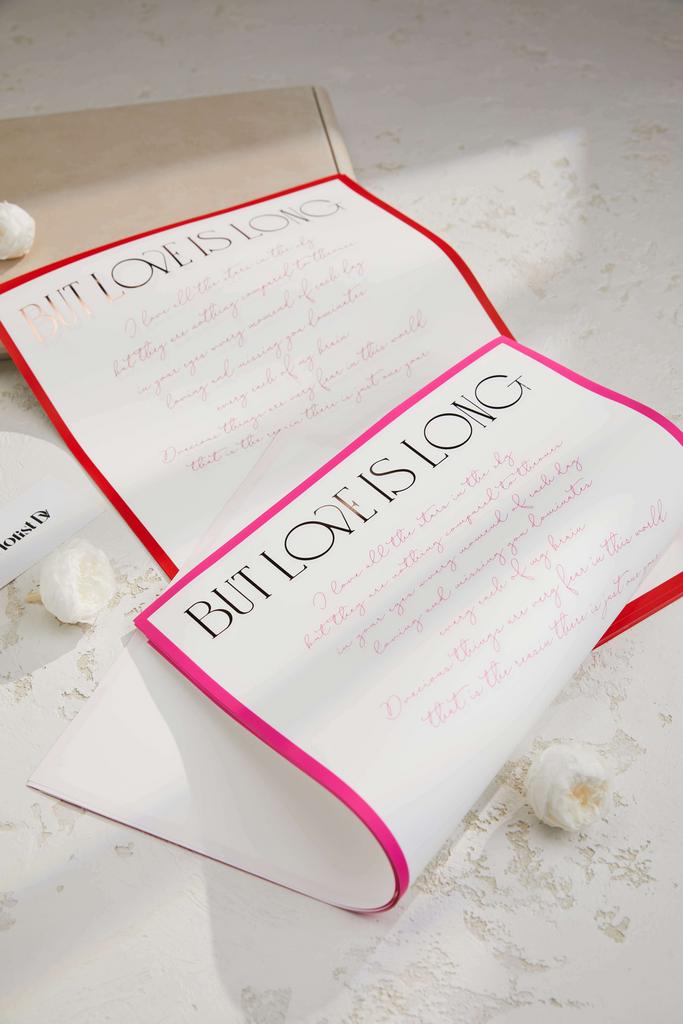 BUT LOVE IS LONG
I love all the stars in the sky
but they are nothing compared to thouse
in your eyes every moment of each day
loving and missing you dominates
every each of my brain
Precious things are very few in this world
that is the reason there is just one you
BUT LOVE IS LONG
I love all the stars in the sky
but they are nothing compared to thouse
in your eyes every moment of each day
loving and missing you dominates
every each of my brain
Precious things are very few in this world
that is the reason there is just one you